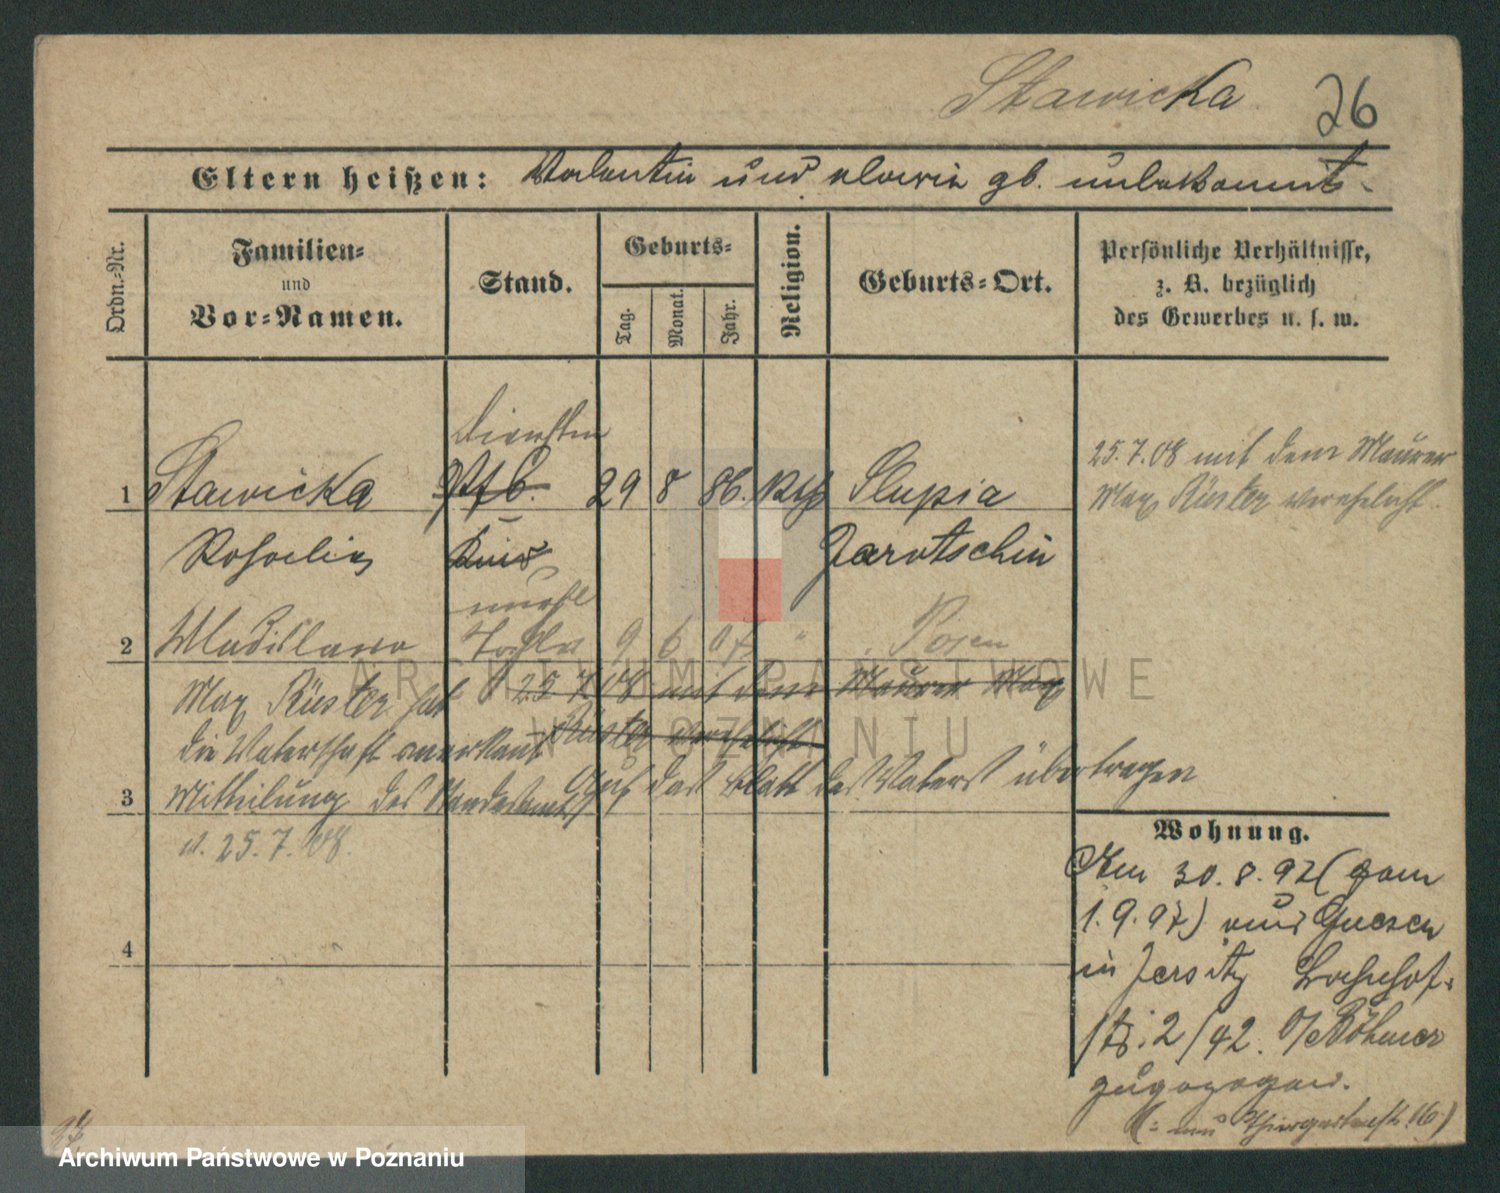 Stawicka
26
Eltern heißen: Valentin und Marie gb. unbekannt.
Ordn.-Nr.
Familien-
und
Vor-Namen.
Stand.
Geburts-
Tag.
Monat.
Jahr.
Religion.
Geburts-Ort.
Persönliche Verhältnisse,
z. B. bezüglich
des Gewerbes u. s. w.
1 Stawicka 29 8 86. kth Slupia
Jarotschin
25.7.08 mit dem Maurer
Max Rüster verehelicht.
2 Wladislawa 9 6 07 " Posen
unehl
Tochter
Max Rüster hat 25 7 08 mit dem Maurer Max
die Vaterschaft anerkannt Rüster verehelicht
3 Mitheilung des Standesamts Auf das Blatt des Vaters übertragen
v. 25.7.08.
4
Wohnung.
30.8.97 (zum
1.9.97) aus Gnesen
in Jersitz Bahnhof-
str. 2/42. b/Böhmer
zugezogen.
ARCHIWUM PAŃSTWOWE
W POZNANIU
Archiwum Państwowe w Poznaniu